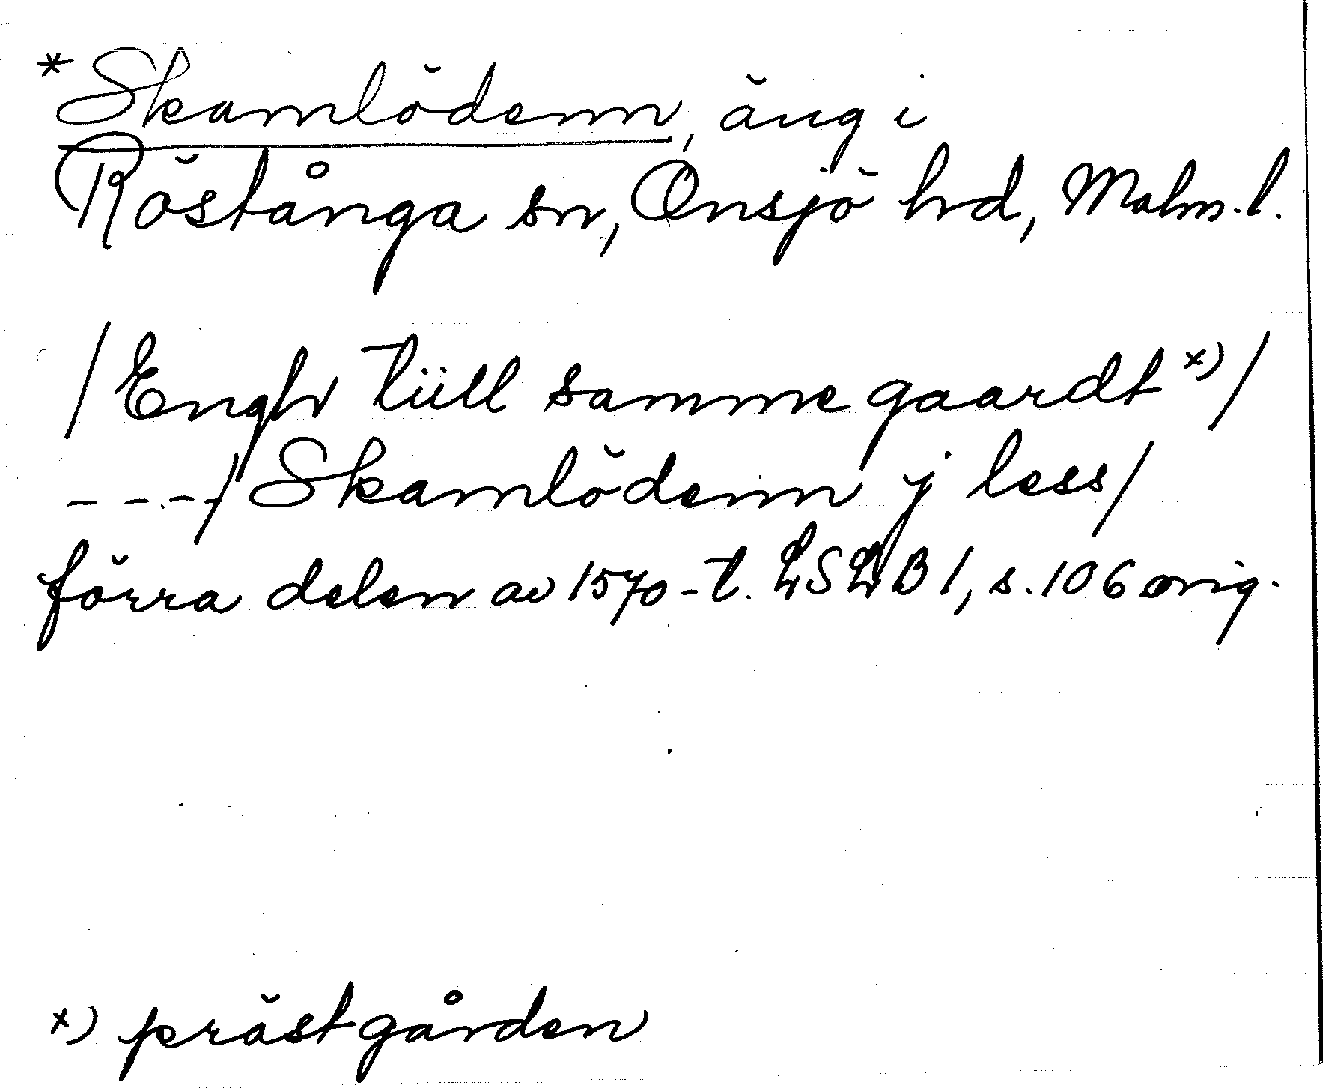 *Skamlödenn, äng i
Röstånga sn, Onsjö hrd, Malm. l.
/Engh tiill samme gaardt x)/
----/Skamlödenn j less/
förra delen av 1570-t. LSLB 1, s. 106 orig.
x) prästgården